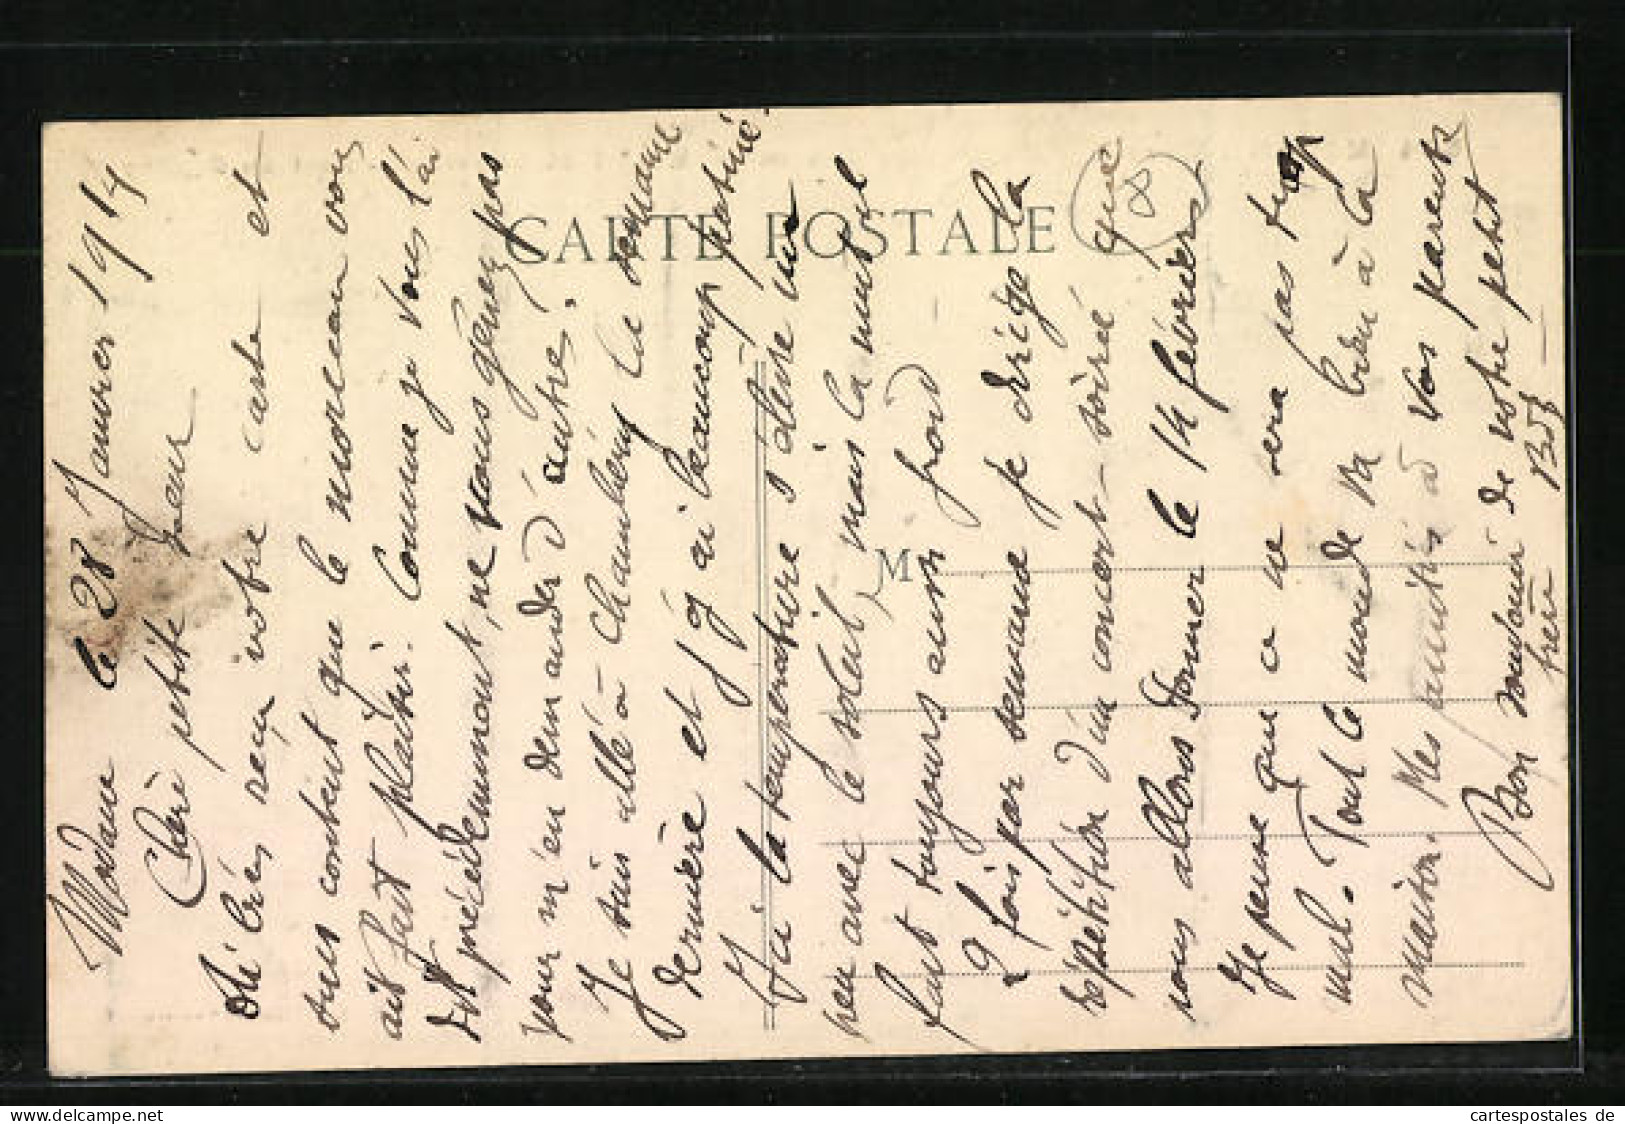 Modane le 28 Janvier 1914
Chère petite soeur
J'ai bien reçu votre carte et
suis content que le morceau vous
ait fait plaisir. Comme je vous l'ai
dit précédemment, ne vous gênez pas
pour m'en demander d'autres.
Je suis allé à Chambéry la semaine
dernière et j'y ai beaucoup patiné.
Ici la température s'élève un
peu avec le soleil, mais la nuit il
fait toujours aussi froid
2 fois par semaine je dirige la
répétition d'un concert-soirée que
nous allons donner le 14 février
Je pense que ce ne sera pas trop
mal. Tout le monde va bien à la
maison. Mes amitiés à vos parents
Bon souvenir de votre petit
frère
CARTE POSTALE
8
M
www.cartespostales.de
cartespostales de